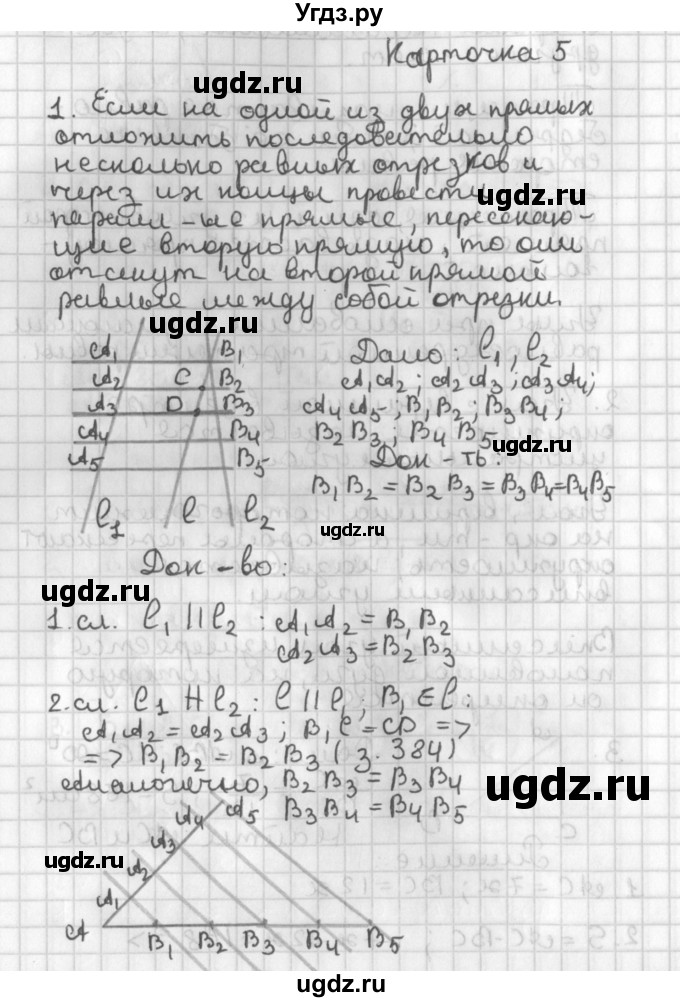 Угдз.ру
Карточка 5
ugdz.ru
1. Если на одной из двух прямых
отложить последовательно
несколько равных отрезков и
через их концы провести
ugdz.ru
паралл-ые прямые, пересекаю-
щие вторую прямую, то они
отсекут на второй прямой
равные между собой отрезки.
ugdz.ru
A₁ B₁ Дано: l₁, l₂
A₂ C B₂ A₁A₂; A₂A₃; A₃A₄;
A₃ D B₃ A₄A₅; B₁B₂; B₃B₄;
A₄ B₄ B₂B₃; B₄B₅
ugdz.ru
A₅ B₅ Док-ть:
B₁B₂ = B₂B₃ = B₃B₄ = B₄B₅
l₁ l l₂
ugdz.ru
Док-во:
1.сл. l₁ || l₂ : A₁A₂ = B₁B₂
A₂A₃ = B₂B₃
2.сл. l₁ ∦ l₂ : l || l₁; B₁ ∈ l:
A₁A₂ = A₂A₃; B₁C = CD =>
=> B₁B₂ = B₂B₃ (з. 384)
Аналогично, B₂B₃ = B₃B₄
B₃B₄ = B₄B₅
ugdz.ru
ugdz.ru
A₅
A₄
A₃
A₂
A₁
A B₁ B₂ B₃ B₄ B₅
ugdz.ru
ugdz.ru